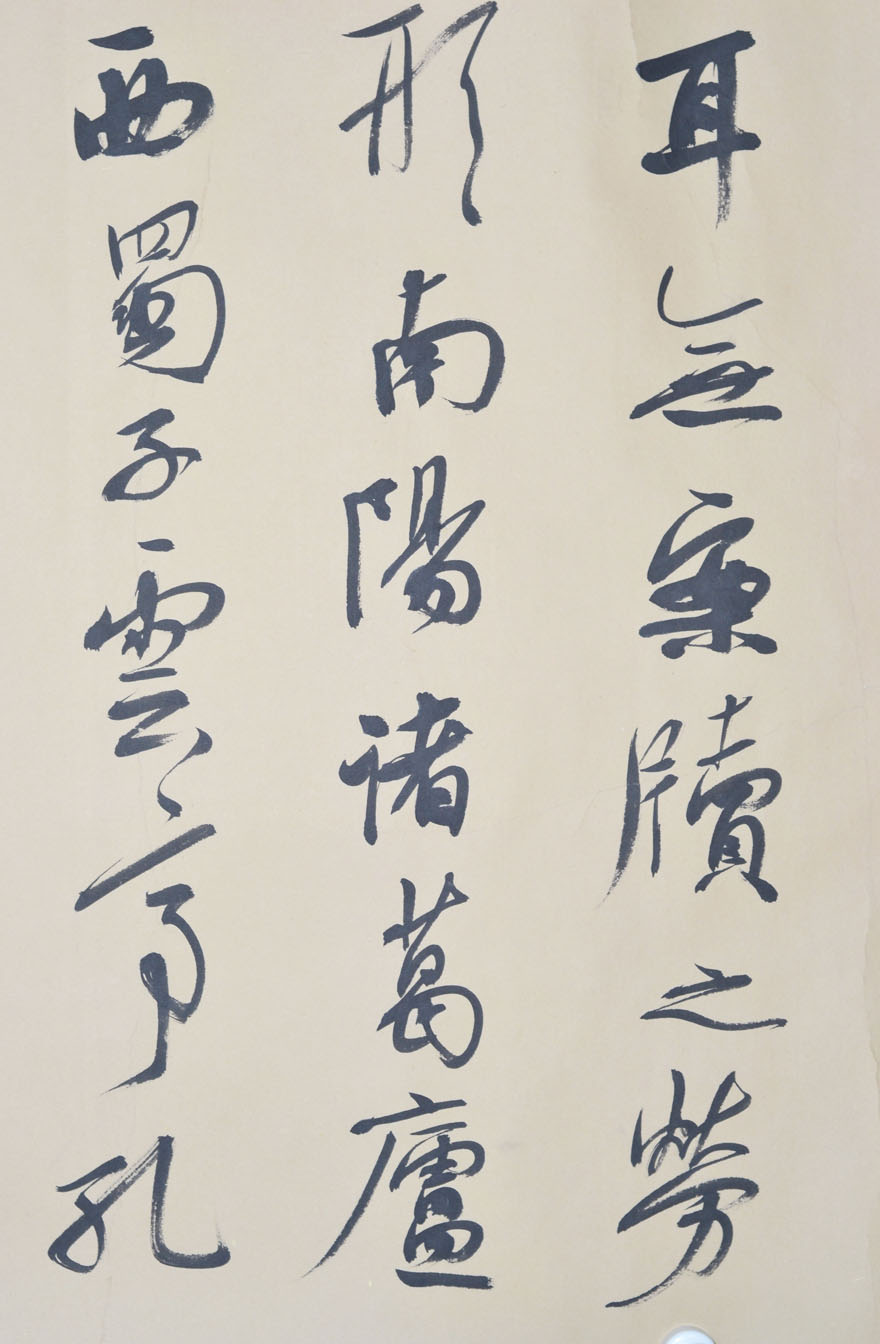 耳無案牘之勞
形南陽諸葛廬
西蜀子雲亭孔